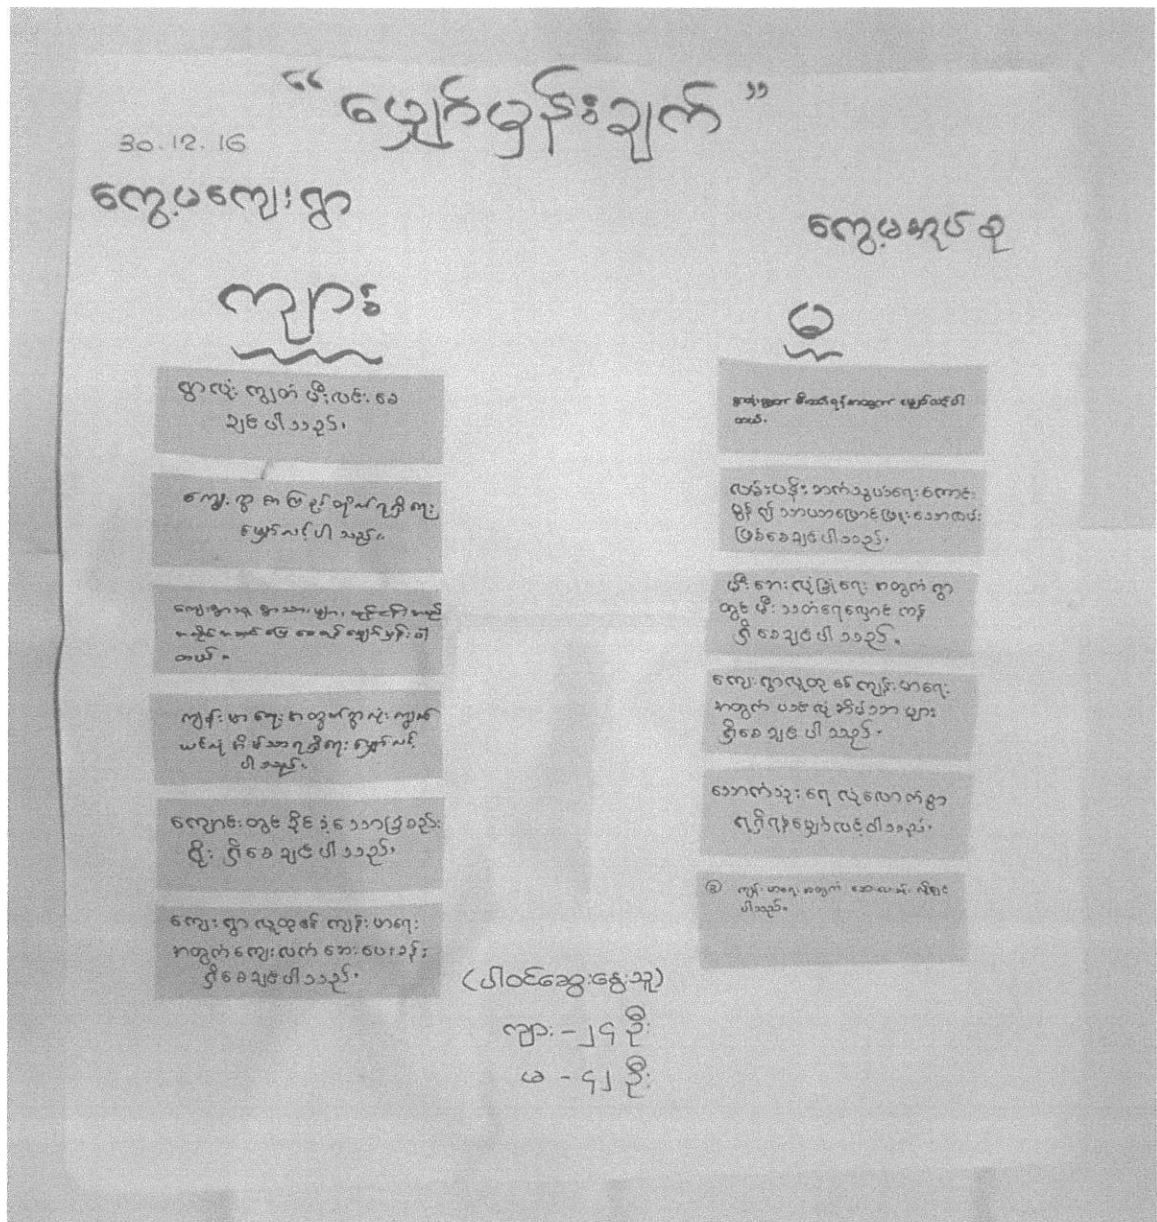 “ မျှော်မှန်းချက် ”
30.12.16
ကွေ့မကျေးရွာ
ကွေ့မအုပ်စု
ကျား
ရွာလုံးကျွတ် မီးလင်းစေ
ချင်ပါသည်။
ကျေးရွာ စာကြည့်တိုက်ရရှိရေး
မျှော်လင့်ပါသည်။
တယ်။
ကျန်းမာရေးအတွက် ရွာလုံးကျွတ်
ယင်လုံအိမ်သာရရှိရေး မျှော်လင့်
ပါသည်။
ကျောင်းတွင် ခိုင်ခံ့သောခြံစည်း
ရိုး ရှိစေချင်ပါသည်။
ကျေးရွာလူထု၏ ကျန်းမာရေး
အတွက် ကျေးလက်ဆေးပေးခန်း
ရှိစေချင်ပါသည်။
မ
တယ်။
လမ်းပန်းဆက်သွယ်ရေးကောင်း
မွန်၍ သာယာဖြောင့်ဖြူးသောလမ်း
ဖြစ်စေချင်ပါသည်။
မီးဘေးလုံခြုံရေး အတွက် ရွာ
တွင် မီးသတ်ရေလှောင်ကန်
ရှိစေချင်ပါသည်။
ကျေးရွာလူထု၏ ကျန်းမာရေး
အတွက် ယင်လုံအိမ်သာများ
ရှိစေချင်ပါသည်။
သောက်သုံးရေ လုံလောက်စွာ
ရရှိရန်မျှော်လင့်ပါသည်။
ကျန်းမာရေးအတွက်
ပါသည်။
(ပါဝင်ဆွေးနွေးသူ)
ကျား - ၂၄ ဦး
မ - ၄၂ ဦး